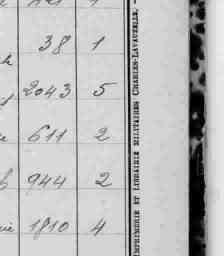 38 1
2043 5
611 2
944 2
1810 4
IMPRIMERIE ET LIBRAIRIE MILITAIRES CHARLES-LAVAUZELLE. —